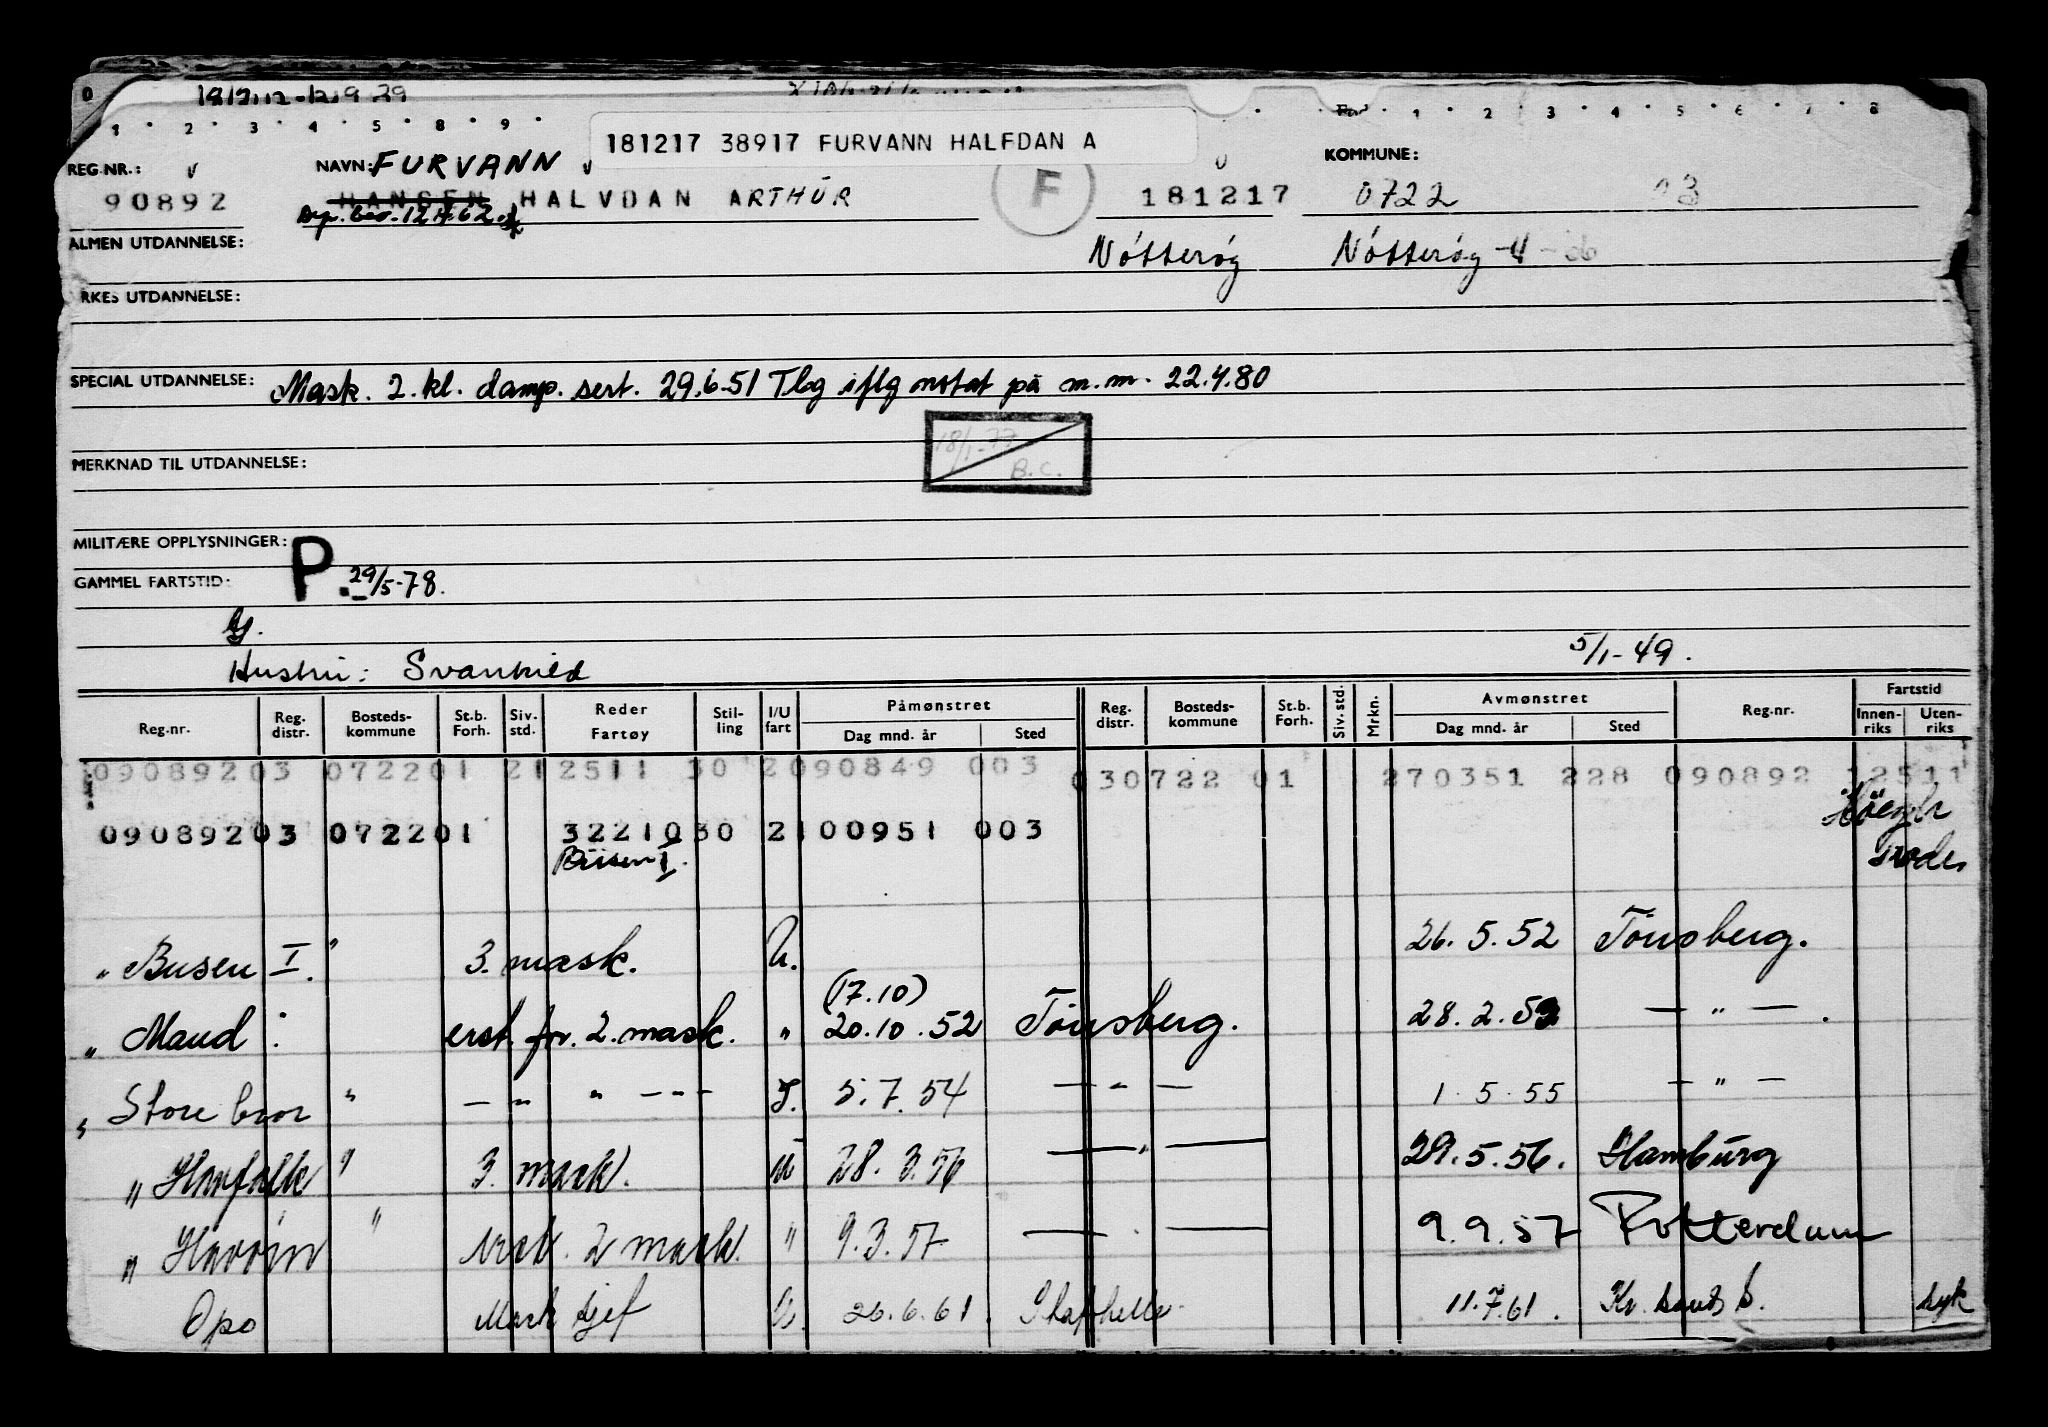 0 1 2 3 4 5 8 9 1 2 3 4 5 6 7 8
181217 38917 FURVANN HALFDAN A
REG.NR.: v NAVN: FURVANN v KOMMUNE:
90892 HANSEN HALVDAN ARTHUR F 181217 0722
bev. 12.4.62.
ALMEN UTDANNELSE: Nøtterøy Nøtterøy
RKES UTDANNELSE:
SPECIAL UTDANNELSE: Mask. 2. kl. damp. sert. 29.6.51 Tbg iflg notat på m.m. 22.4.80
18/1-77 B.C.
MERKNAD TIL UTDANNELSE:
MILITÆRE OPPLYSNINGER: P.
GAMMEL FARTSTID: 29/5-78.
G.
Hustru: Svanhild 5/1-49.
Reg.nr. Reg. distr. Bosteds-kommune St.b. Forh. Siv. std. Reder Fartøy Stil-ling I/U fart Påmønstret Dag mnd. år Sted Reg. distr. Bosteds-kommune St.b. Forh. Siv. std. Mrkn. Avmønstret Dag mnd. år Sted Reg.nr. Fartstid Innen-riks Uten-riks
09089203 072201 212511 30 2090849 003 030722 01 270351 228 090892 12511
09089203 072201 3221030 2100951 003
Busen I.
" Busen I. " 3. mask. U. 26.5.52 Tönsberg.
(17.10)
" Maud : erst. for. 2. mask. " 20.10.52 Tönsberg. 28.2.53 — " — .
" Store bror " — " " — - - I. 5.7.54 — " — 1.5.55 — " —
" Havfalk " 3. mask. U 28.3.56 — " — 29.5.56. Hamburg
" Havörn " ersk. 2 mask. " 9.3.57 — " — 9.9.57 Rotterdam
Opo Mask sjef U. 26.6.61. Stathelle 11.7.61. Kr. sand S. syk